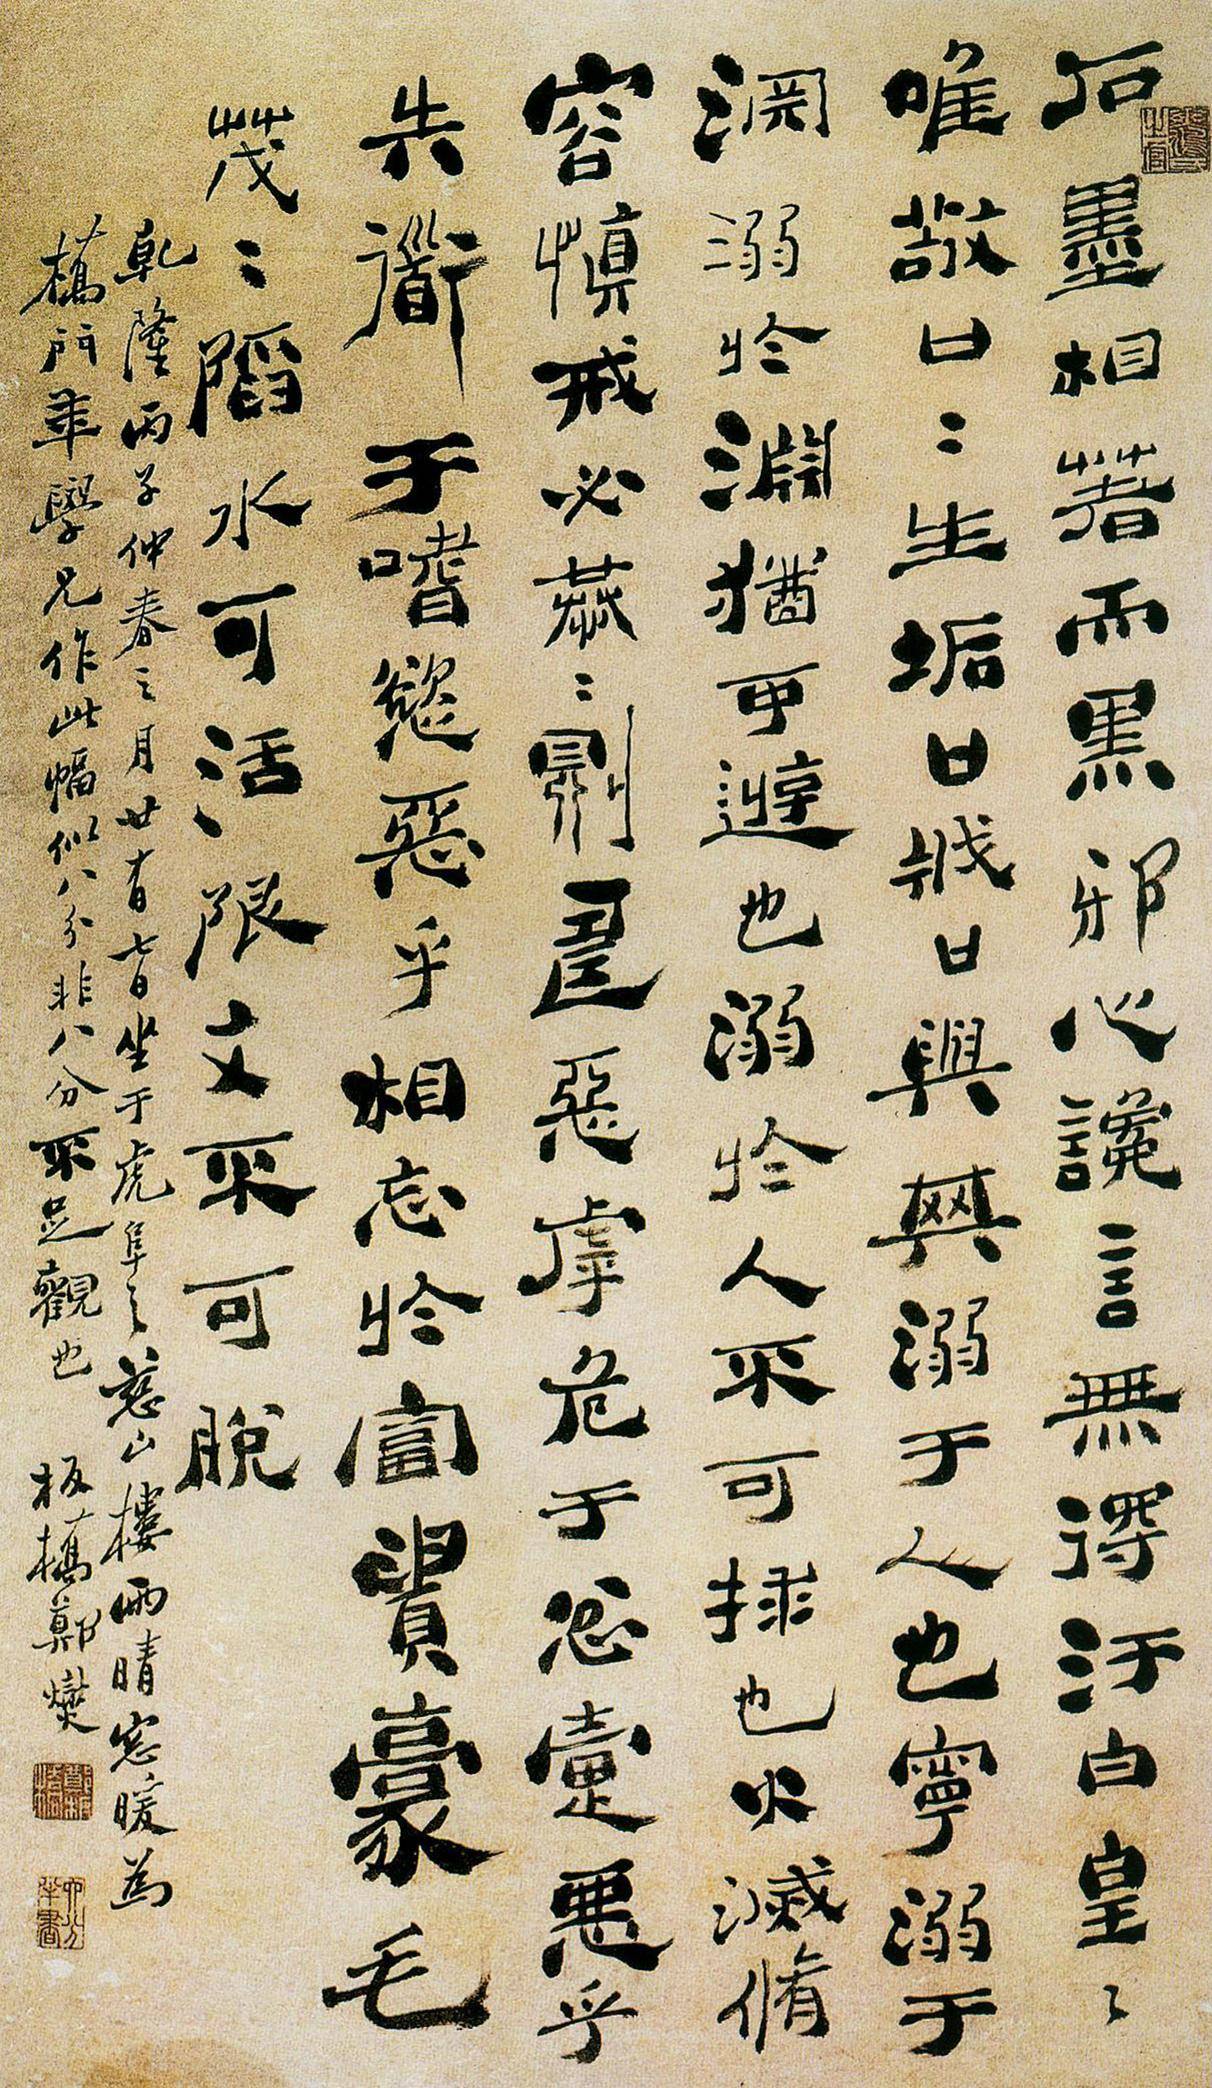 石墨相著而黑邪心讒言無得汙白皇〻
唯敬口〻生垢口戕口與其溺于人也寧溺于
淵溺於淵猶可遊也溺於人不可捄也火滅脩
容慎戒必恭〻則壽惡虖危于忿疐惡乎
失衟于嗜慾惡乎相忘於富貴豪毛
茂〻陷水可活限文不可脫
乾隆丙子仲春之月廿有七日坐于虎阜之慈山樓雨晴窓暖為
橋門年學兄作此幅似八分非八分不足觀也 板橋鄭燮
六分半書